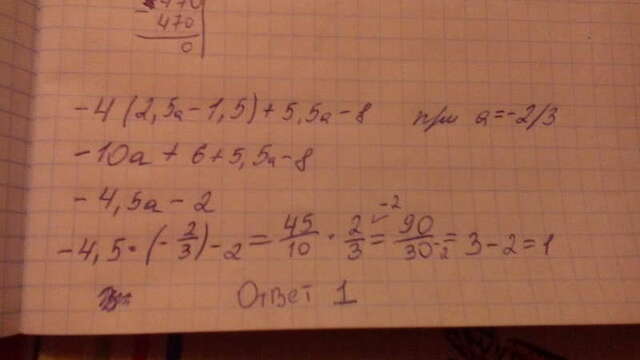 470
- 470
0
-4(2,5a-1,5)+5,5a-8 при a=-2/3
-10a+6+5,5a-8
-4,5a-2
-4,5·(-2/3)-2=45/10·2/3-2=90/30-2=3-2=1
Ответ 1